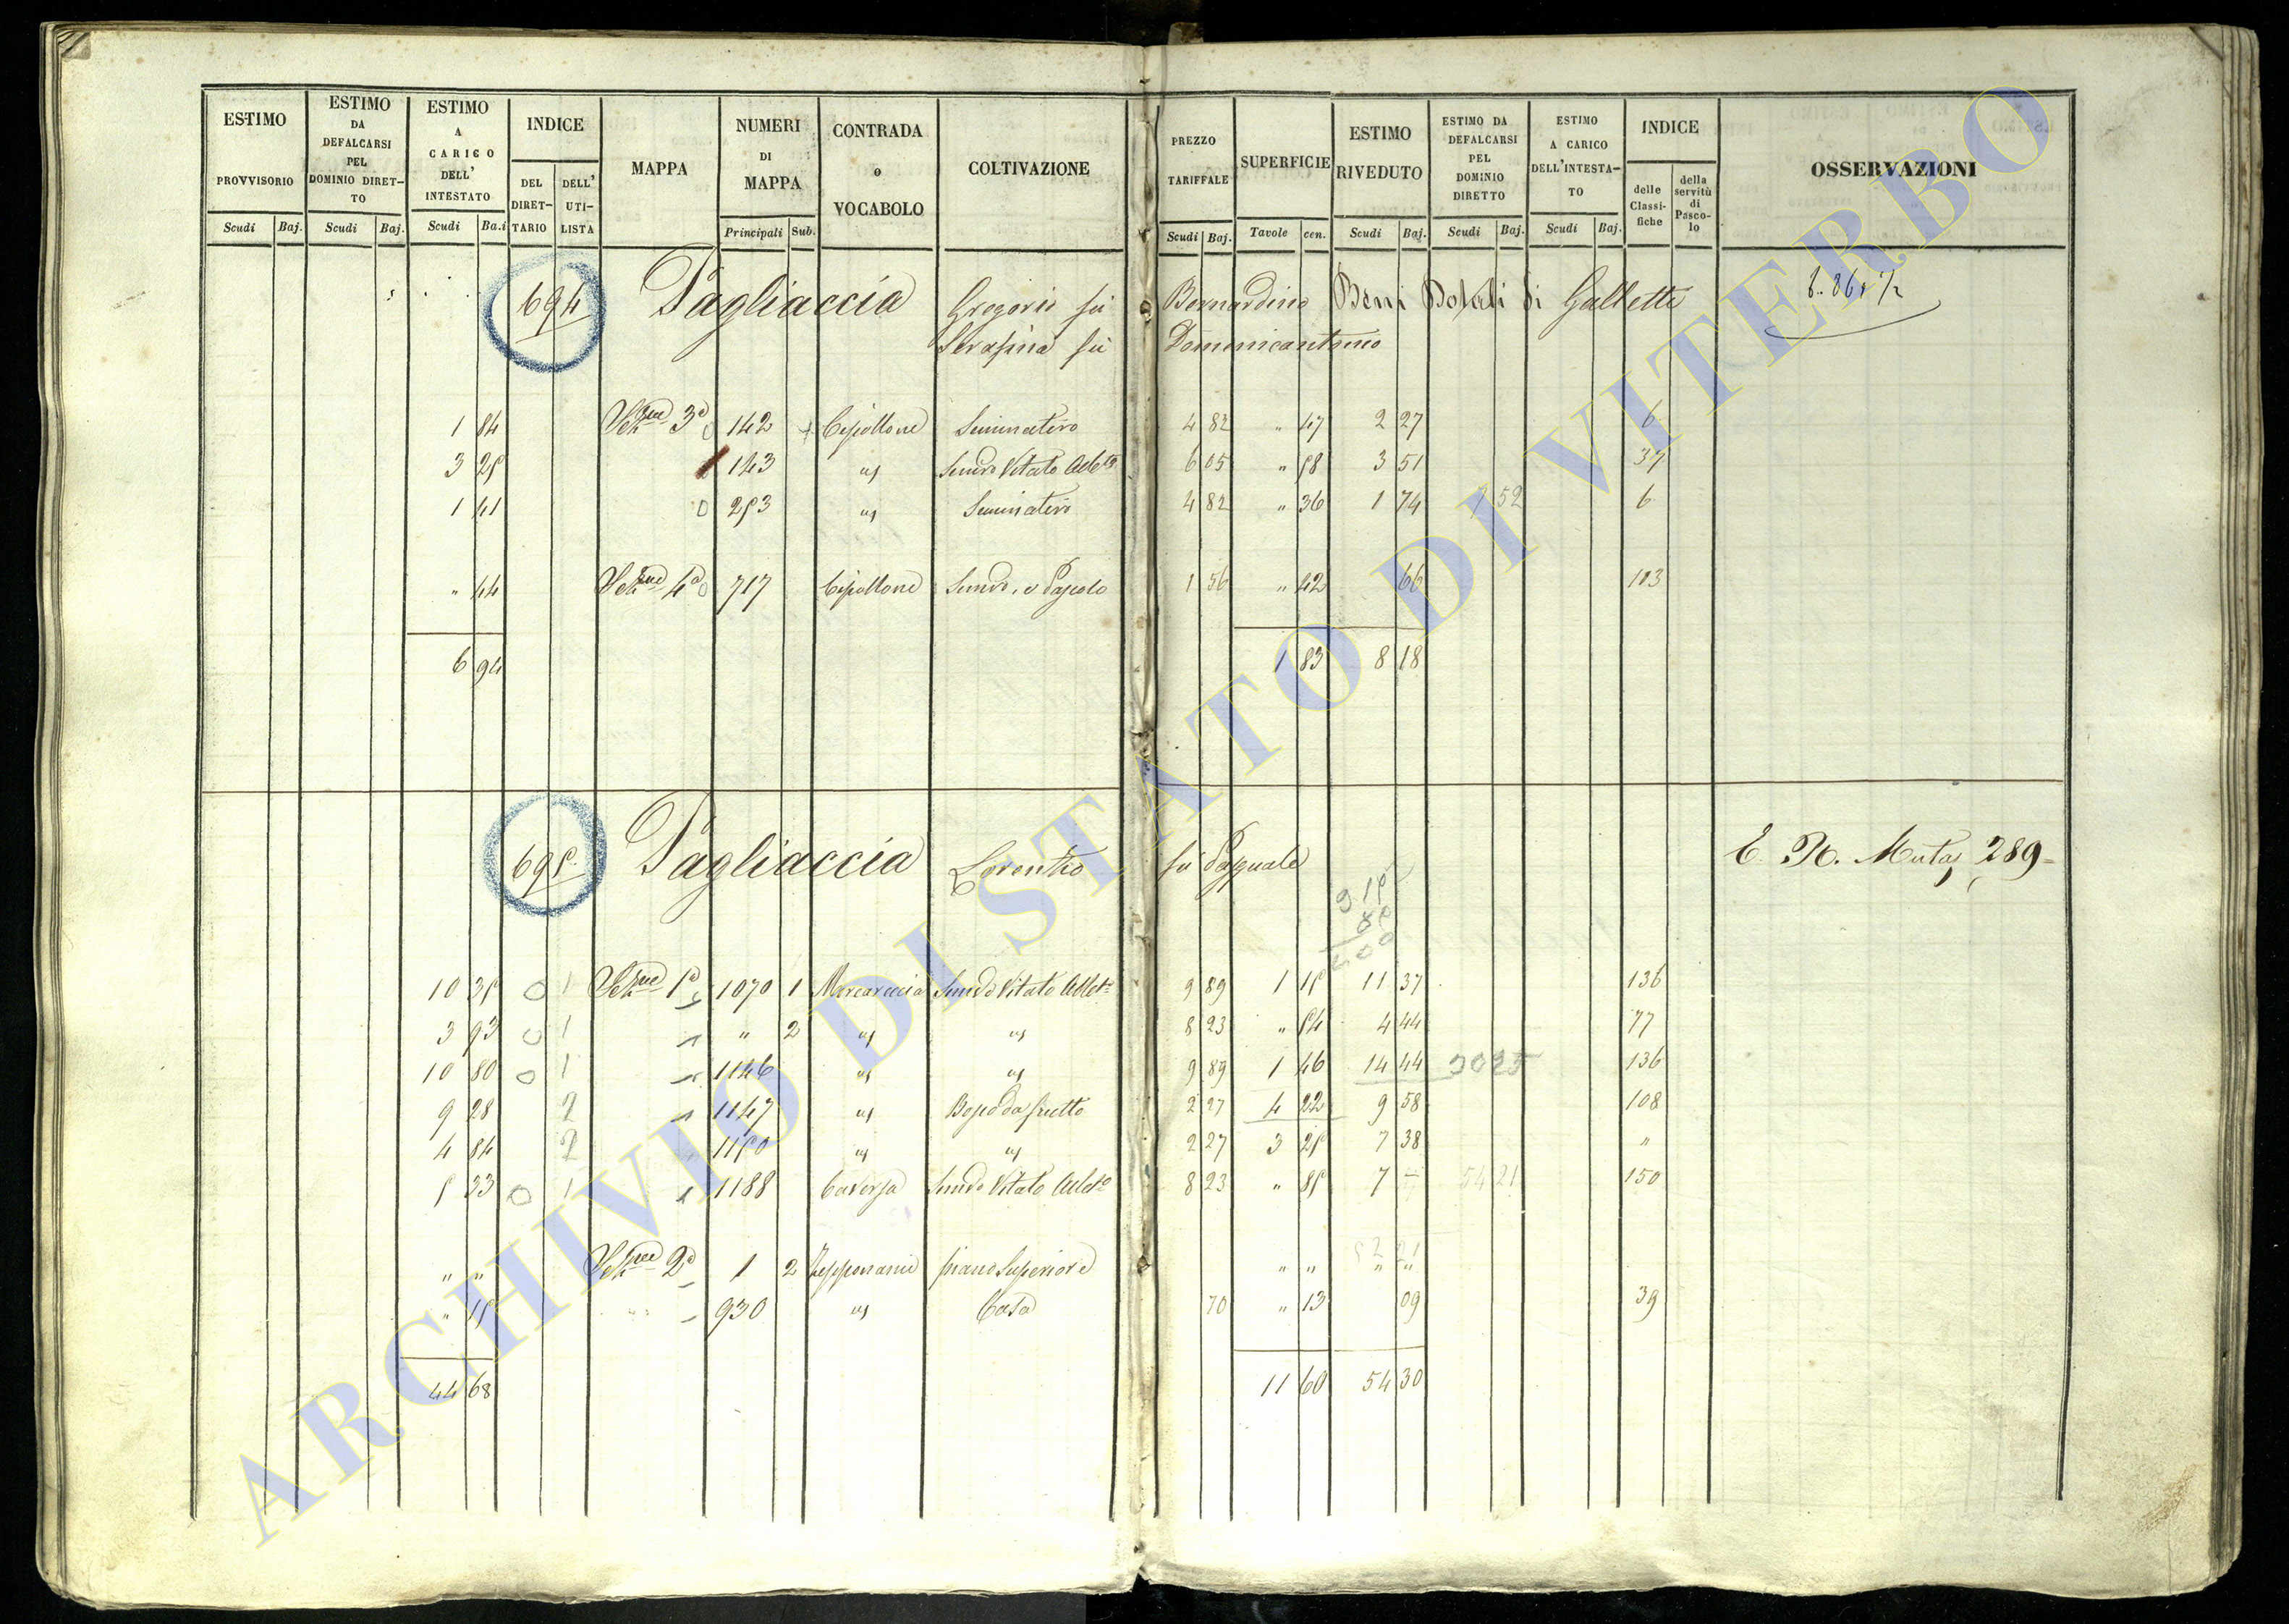 ESTIMO PROVVISORIO | ESTIMO DA DEFALCARSI PEL DOMINIO DIRETTO | ESTIMO A CARICO DELL' INTESTATO | INDICE | MAPPA | NUMERI DI MAPPA | CONTRADA o VOCABOLO | COLTIVAZIONE | PREZZO TARIFFALE | SUPERFICIE | ESTIMO RIVEDUTO | ESTIMO DA DEFALCARSI PEL DOMINIO DIRETTO | ESTIMO A CARICO DELL'INTESTATO | INDICE | OSSERVAZIONI
DEL DIRETTARIO | DELL' UTILISTA | delle Classifiche | della servitù di Pascolo
Scudi | Baj. | Scudi | Baj. | Scudi | Ba.i | Principali | Sub. | Scudi | Baj. | Tavole | cen. | Scudi | Baj. | Scudi | Baj. | Scudi | Baj.
694 Pagliaccia Gregorio fu Bernardino Beni Dotali di Galletti
Serafina fu Domenicantonio
1 84 3ª 142 Cipollone Seminativo 4 82 " 47 2 27 6
3 25 143 " 6 05 " 58 3 51 37
1 41 0 253 " Seminativo 4 82 " 36 1 74 52 6
" 44 4ª 0 717 Cipollone Pascolo 1 56 " 42 66 103
6 94 1 83 8 18
695 Pagliaccia Lorenzo fu Pasquale 289
10 35 0 1 1ª 1070 1 Vitato 9 89 1 15 11 37 136
3 93 0 1 " 2 " " 8 23 " 54 4 44 77
10 80 0 1 1146 " " 9 89 1 46 14 44 3025 136
9 28 2 1147 " Bosco da frutto 2 27 4 22 9 58 108
4 84 2 1150 " " 2 27 3 25 7 38 "
5 33 0 1 1188 Vitato 8 23 " 85 7 – 54 21 150
52 21
" " 2ª 1 2 piano Superiore " " " "
" 15 930 " Casa 70 " 13 09 39
44 68 11 60 54 30
ARCHIVIO DI STATO DI VITERBO